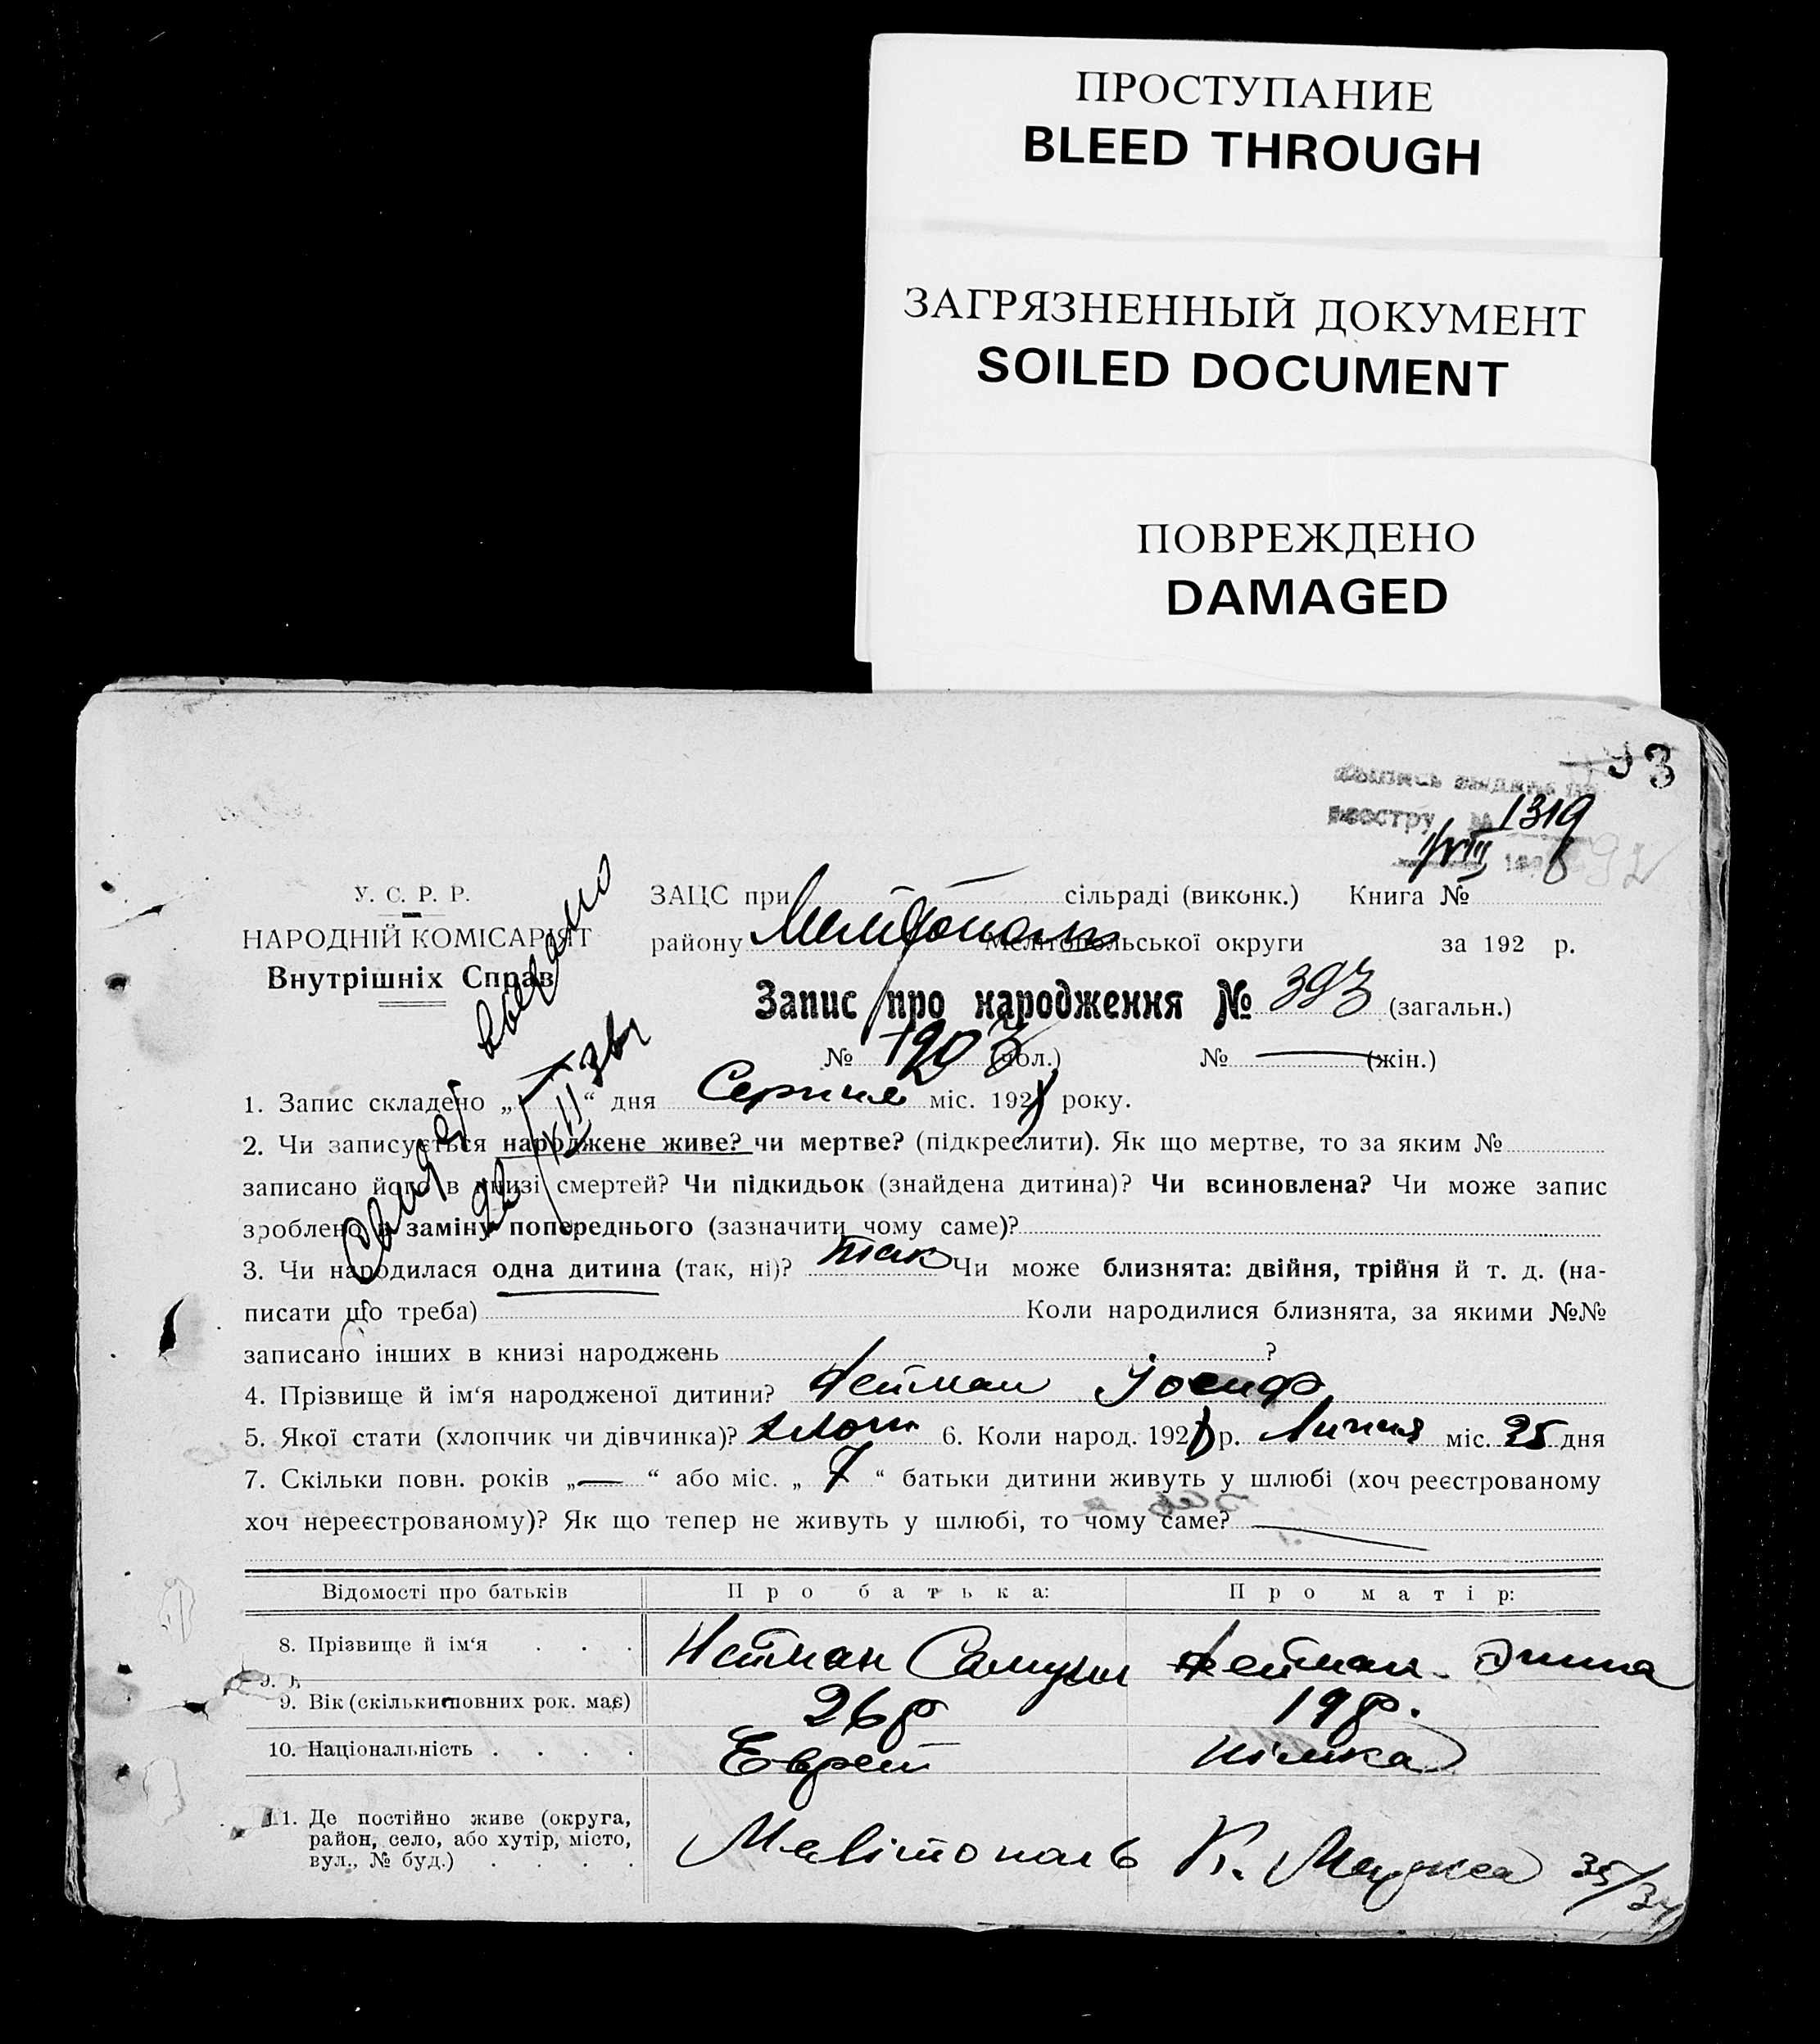 ПРОСТУПАНИЕ
BLEED THROUGH
ЗАГРЯЗНЕННЫЙ ДОКУМЕНТ
SOILED DOCUMENT
ПОВРЕЖДЕНО
DAMAGED
93
реестру № 1319
1/VIII
У. С. Р. Р.
НАРОДНІЙ КОМІСАРІЯТ
Внутрішніх Справ
ЗАЦС при сільраді (виконк.) Книга №
району Мелітопольської округи за 192 р.
Запис про народження № 393 (загальн.)
№ 203 (чол.) № — (жін.)
1. Запис складено „ “ дня Серпня міс. 192 року.
2. Чи записується народжене живе? чи мертве? (підкреслити). Як що мертве, то за яким №
записано його в книзі смертей? Чи підкидьок (знайдена дитина)? Чи всиновлена? Чи може запис
зроблено в заміну попереднього (зазначити чому саме)?
3. Чи народилася одна дитина (так, ні)? так Чи може близнята: двійня, трійня й т. д. (на-
писати що треба) Коли народилися близнята, за якими №№
записано інших в книзі народжень ?
4. Прізвище й ім‘я народженої дитини? Нейман Іосиф
5. Якої стати (хлопчик чи дівчинка)? хлопч 6. Коли народ. 192 р. Липня міс. 25 дня
7. Скільки повн. років „—“ або міс. „ 7 “ батьки дитини живуть у шлюбі (хоч реєстрованому
хоч нереєстрованому)? Як що тепер не живуть у шлюбі, то чому саме? —
Відомості про батьків Про батька: Про матір:
8. Прізвище й ім‘я . . . Нейман Самуил Нейман
9. Вік (скільки повних рок. має) 26 р 19 р.
10. Національність . . . . Еврей німка
11. Де постійно живе (округа,
район, село, або хутір, місто,
вул., № буд.) . . . . Мелітополь К. Маркса 35/37